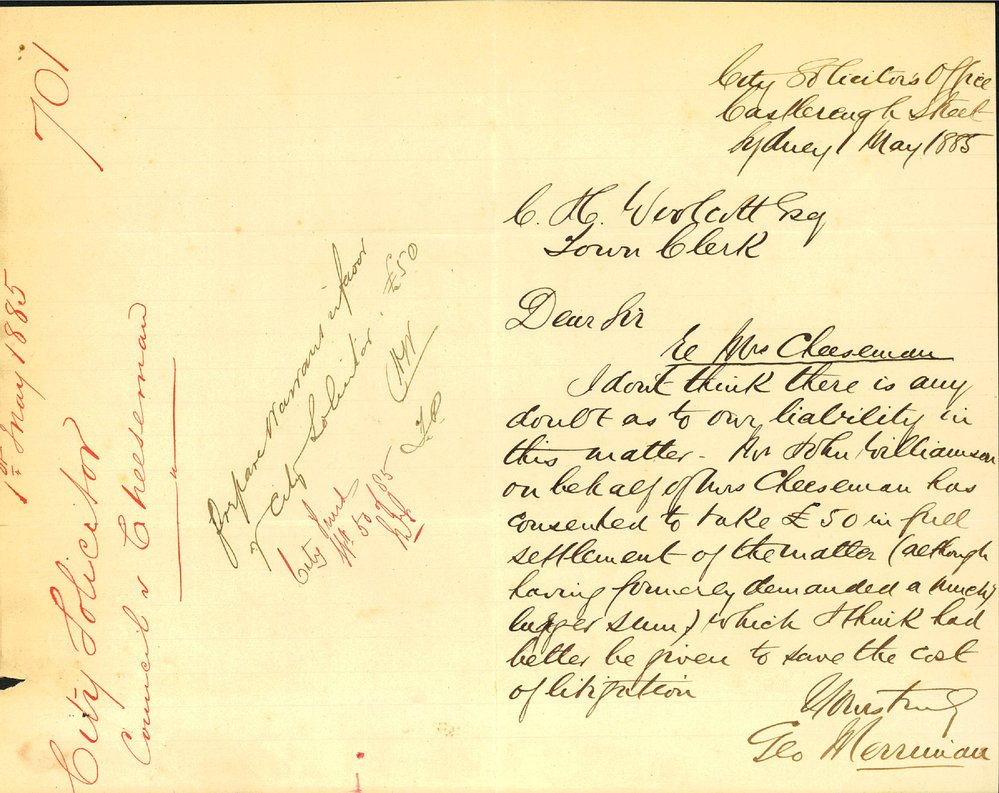 701
1st May 1885
City Solicitor
Council v Cheeseman
"
Prepare Warrant in favor
of City Solicitor £50
CHW
T.C.
City Fund
Wt 50 of 85
City Solicitors Office
Castlereagh Street
Sydney 1 May 1885
C. H. Woolcott Esq
Town Clerk
Dear Sir
Re Mrs Cheeseman
I don't think there is any
doubt as to our liability in
this matter. Mr John Williamson
on behalf of Mrs Cheeseman has
consented to take £50 in full
settlement of the matter (although
having formerly demanded a much
larger sum) which I think had
better be given to save the cost
of litigation
Yours truly
Geo Merriman